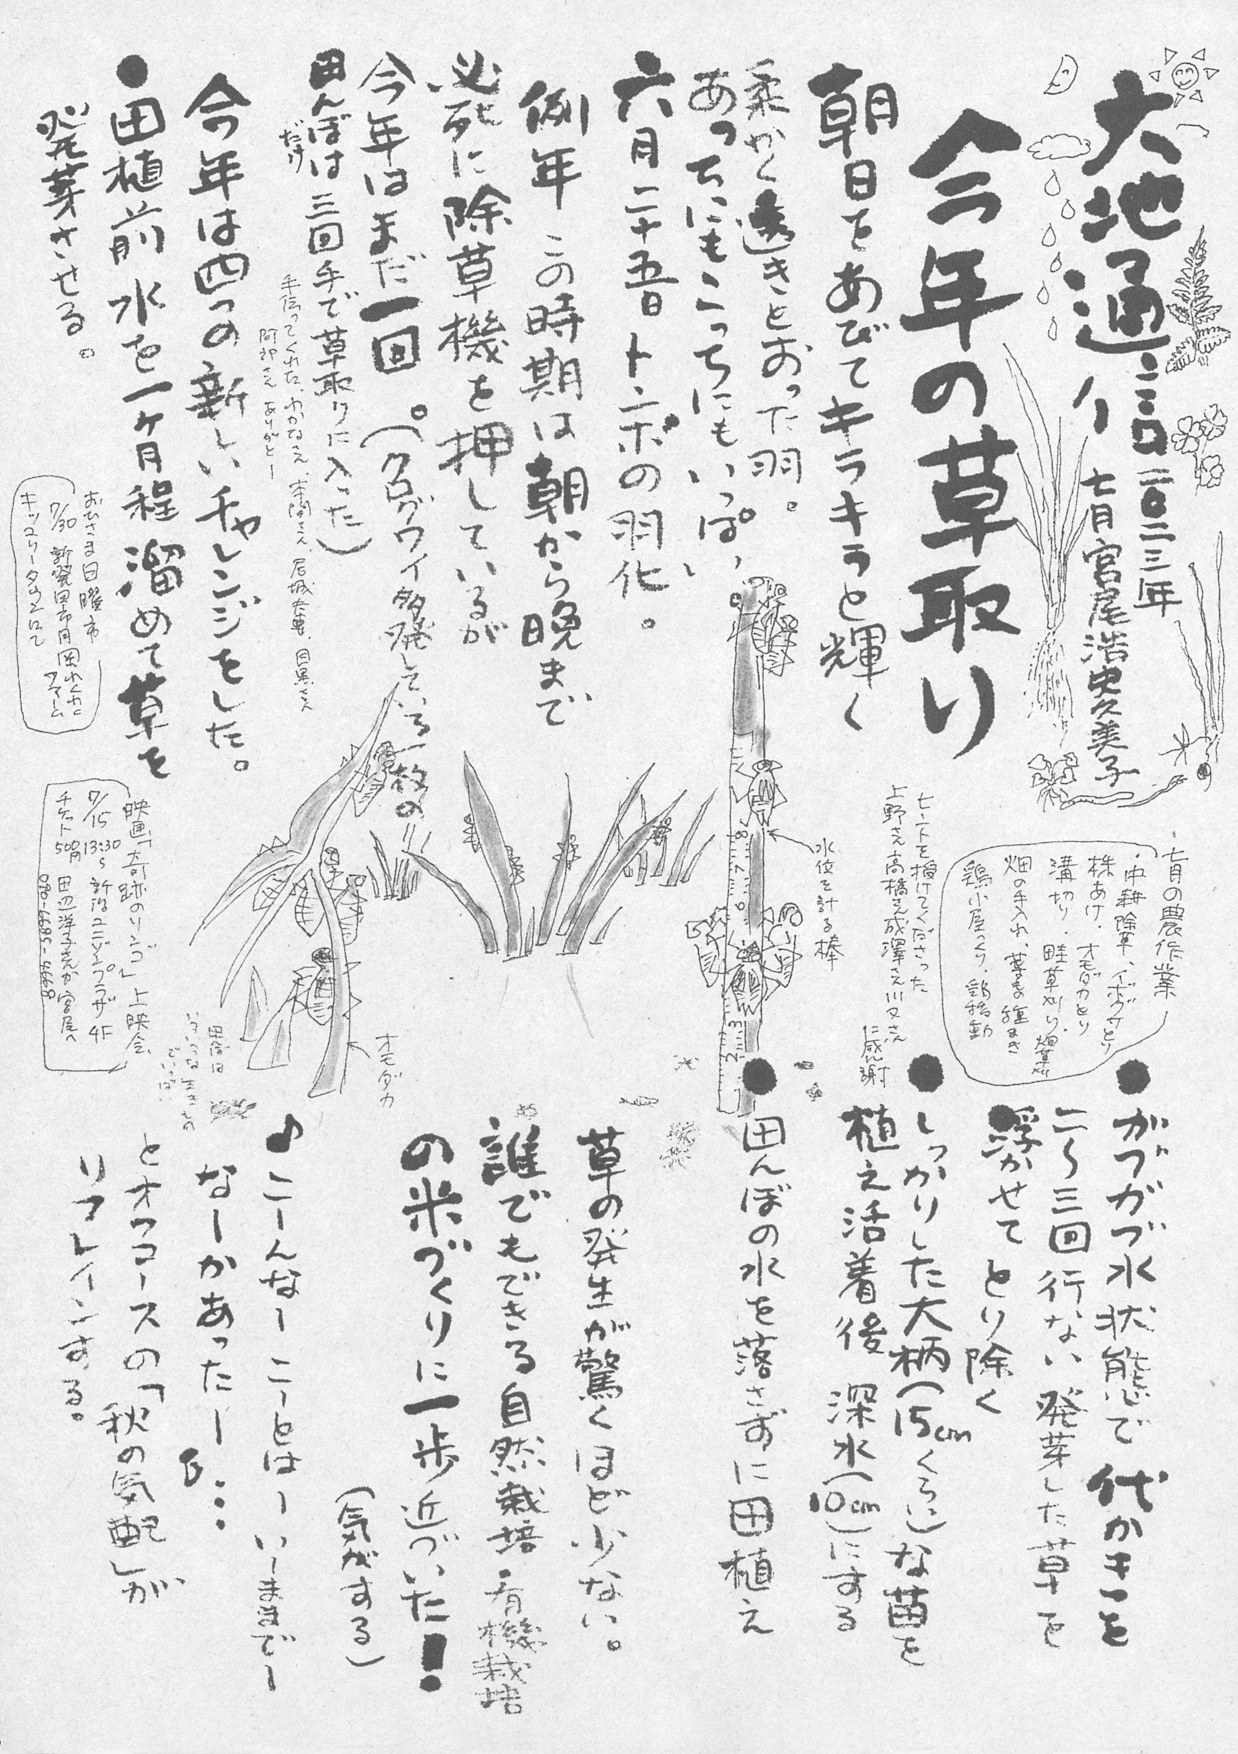 大地通信
二〇二三年
七月 宮尾浩史 久美子
今年の草取り
朝日をあびてキラキラと輝く
柔かく透きとおった羽。
あっちにもこっちにもいっぱい、
六月二十五日トンボの羽化。
例年 この時期は朝から晩まで
必死に除草機を押しているが
今年はまだ一回。(クログワイ多発している一枚の
田んぼは三回手で草取りに入った)
だけ
手伝ってくれた、わかなさん、本間さん、
阿部さん ありがとー
今年は四つの新しいチャレンジをした。
●田植前 水を一ヶ月程 溜めて草を
発芽させる。
おひさま日曜市
7/30 新発田市月岡わくわくファーム
キッコリータウンにて
映画「奇跡のリンゴ」上映会
7/15 13:30~ 新潟ユニゾンプラザ4F
チケット500円 田辺洋子さんか宮尾へ
七月の農作業
・中耕除草、イボクサとり
株あけ、オモダカとり
溝切り、畦草刈り、
畑の手入れ、
鶏小屋つくり、鶏移動
ヒントを授けてくださった
上野さん高橋さん成澤さん川又さん
に感謝
水位を計る棒
オモダカ
田んぼは
いろいろな生きもの
でいっぱい
●ガブガブ水状態で 代かきを
二~三回 行ない 発芽した草を
浮かせて とり除く
●しっかりした大柄(15cmくらい)な苗を
植え活着後 深水(10cm)にする
●田んぼの水を落さずに田植え
草の発生が驚くほど少ない。
誰でもできる自然栽培・有機栽培
の米づくりに一歩近づいた!
(気がする)
♪こーんなーこーとはーいーままでー
なーかあったー…
とオフコースの「秋の気配」が
リフレインする。